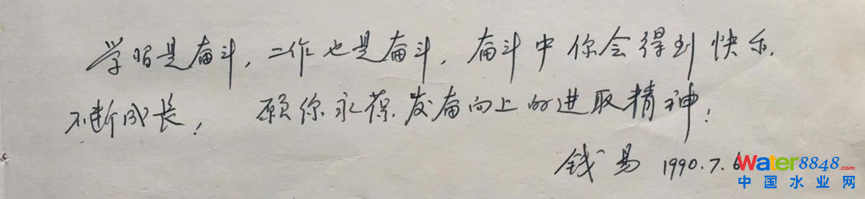 学习是奋斗，工作也是奋斗，奋斗中你会得到快乐，
不断成长！ 愿你永葆发奋向上的进取精神！
钱易 1990.7.6
Water8848.com
中国水业网